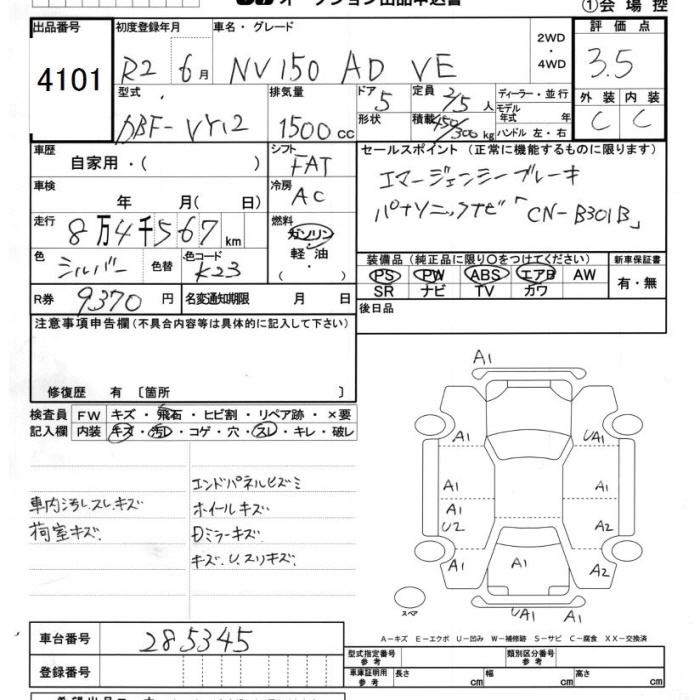 オークション出品申込書
①会場控
出品番号 4101
初度登録年月 R2 6月
車名・グレード NV150 AD VE
2WD・4WD
評価点 3.5
外装 C 内装 C
型式 DBF-VY12
排気量 1500cc
ドア 5
形状
定員 2/5人
積載 450/300kg
ディーラー・並行
モデル年式 年
ハンドル 左・右
車歴 自家用・( )
シフト FAT
セールスポイント (正常に機能するものに限ります)
エマージェンシーブレーキ
パナソニックナビ「CN-B301B」
車検 年 月( 日)
冷房 AC
走行 8万4千567km
燃料 ガソリン・軽油・( )
色 シルバー 色替 色コード K23
装備品 (純正品に限り○をつけてください)
PS PW ABS エアB AW
SR ナビ TV カワ
新車保証書 有・無
R券 9370円 名変通知期限 月 日
後日品
注意事項申告欄(不具合内容等は具体的に記入して下さい)
修復歴 有 〔箇所 〕
検査員記入欄
FW キズ・飛石・ヒビ割・リペア跡・×要
内装 キズ・汚レ・コゲ・穴・スレ・キレ・破レ
車内汚レ.スレ.キズ
荷室キズ.
エンドパネルヒズミ
ホイールキズ
Dミラーキズ.
キズ.U.スリキズ.
A1
A1 UA1
A1
A1 U2 A2
A1 A1 A2
UA1 A1
スペア
A-キズ E-エクボ U-凹み W-補修跡 S-サビ C-腐食 XX-交換済
車台番号 285345
登録番号
型式指定番号 参考
類別区分番号 参考
車庫証明用 参考 長さ cm 幅 cm 高さ cm